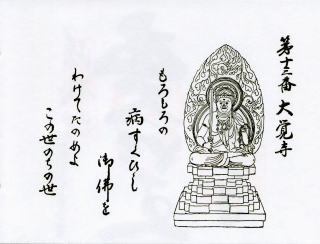 第十三番 大覚寺
もろもろの
病すくひし
御佛を
わけてたのめよ
この世のちの世